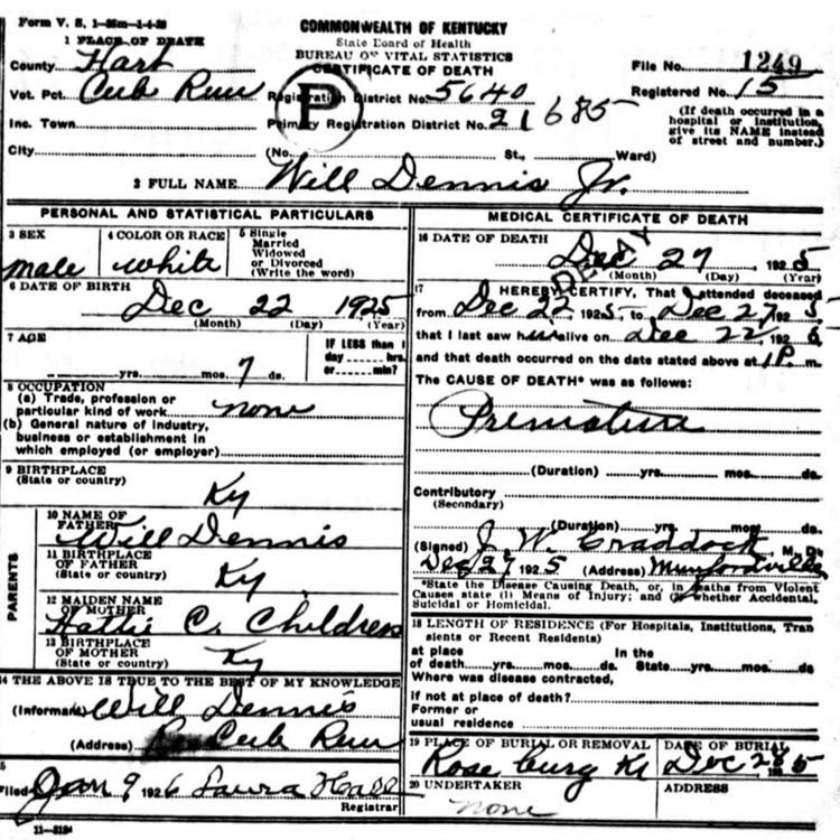 Form V. S. 1
COMMONWEALTH OF KENTUCKY
State Board of Health
BUREAU OF VITAL STATISTICS
CERTIFICATE OF DEATH
1 PLACE OF DEATH
County Hart
File No. 1249
Vot. Pct. Cub Run Registration District No. 5640 Registered No. 15
P
Inc. Town Primary Registration District No. 21685
(If death occurred in a hospital or institution, give its NAME instead of street and number.)
City (No. St., Ward)
2 FULL NAME Will Dennis Jr.
PERSONAL AND STATISTICAL PARTICULARS
3 SEX male
4 COLOR OR RACE white
5 Single
Married
Widowed
or Divorced
(Write the word)
6 DATE OF BIRTH
Dec 22 1925
(Month) (Day) (Year)
7 AGE
yrs. mos. 7 ds.
IF LESS than 1
day hrs.
or min?
8 OCCUPATION
(a) Trade, profession or
particular kind of work none
(b) General nature of industry,
business or establishment in
which employed (or employer)
9 BIRTHPLACE
(State or country)
Ky
PARENTS
10 NAME OF
FATHER
Will Dennis
11 BIRTHPLACE
OF FATHER
(State or country)
Ky
12 MAIDEN NAME
OF MOTHER
Hattie C. Childress
13 BIRTHPLACE
OF MOTHER
(State or country)
Ky
14 THE ABOVE IS TRUE TO THE BEST OF MY KNOWLEDGE
(Informant) Will Dennis
(Address) Cub Run
15
Filed Jan 9 1926 Laura Hall
Registrar
11—3184
MEDICAL CERTIFICATE OF DEATH
16 DATE OF DEATH
Dec 27, 1925
(Month) (Day) (Year)
17 I HEREBY CERTIFY, That I attended deceased
from Dec 22 1925, to Dec 27, 1925
that I last saw him alive on Dec 22, 1926,
and that death occurred on the date stated above at 1 P. m.
The CAUSE OF DEATH* was as follows:
Premature
(Duration) yrs. mos. ds.
Contributory
(Secondary)
(Duration) yrs. mos. ds.
(Signed) J. W. Craddock, M. D.
Dec 27 1925 (Address) Munfordville
*State the Disease Causing Death, or, in deaths from Violent
Causes state (1) Means of Injury; and (2) whether Accidental,
Suicidal or Homicidal.
18 LENGTH OF RESIDENCE (For Hospitals, Institutions, Tran
sients or Recent Residents)
at place In the
of death yrs. mos. ds. State yrs. mos. ds
Where was disease contracted,
If not at place of death?
Former or
usual residence
19 PLACE OF BURIAL OR REMOVAL DATE OF BURIAL
Rose burg Ky Dec 28 1925
20 UNDERTAKER ADDRESS
none